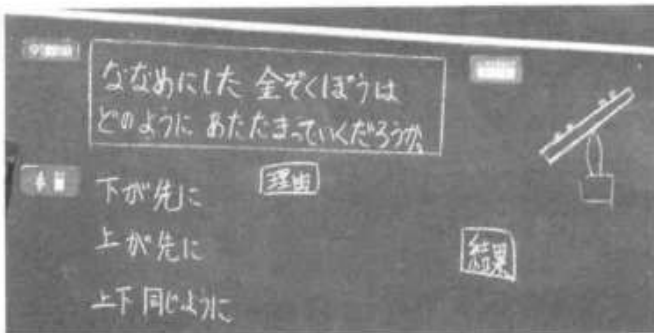 ななめにした 金ぞくぼうは
どのように あたたまっていくだろうか。
理由
下が先に
上が先に
結果
上下 同じように